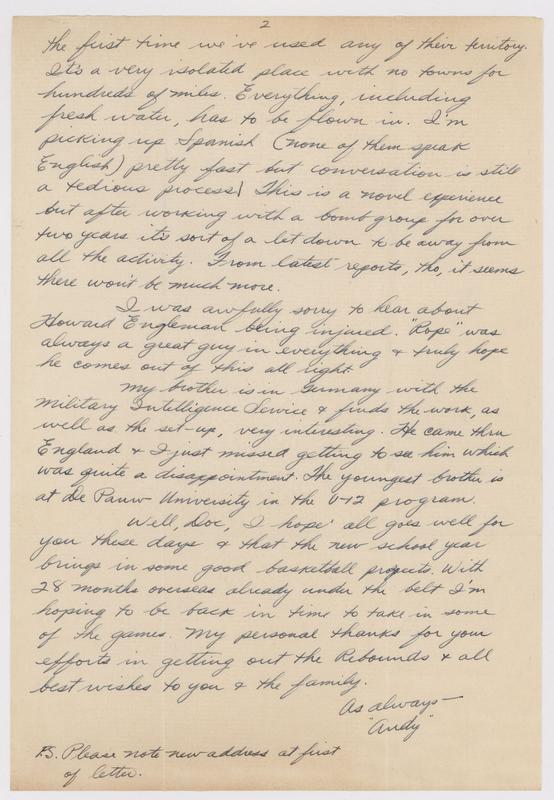 2
the first time we've used any of their territory.
It's a very isolated place with no towns for
hundreds of miles. Everything, including
fresh water, has to be flown in. I'm
picking up Spanish (none of them speak
English) pretty fast but conversation is still
a tedious process! This is a novel experience
but after working with a bomb group for over
two years it's sort of a let down to be away from
all the activity. From latest reports, tho, it seems
there won't be much more.
I was awfully sorry to hear about
Howard Engleman being injured. "Rope" was
always a great guy in everything & truly hope
he comes out of this all right.
My brother is in Germany with the
Military Intelligence Service & finds the work, as
well as the set-up, very interesting. He came thru
England & I just missed getting to see him which
was quite a disappointment. The youngest brother is
at De Pauw University in the V-12 program.
Well, Doc, I hope all goes well for
you these days & that the new school year
brings in some good basketball projects. With
28 months overseas already under the belt I'm
hoping to be back in time to take in some
of the games. My personal thanks for your
efforts in getting out the Rebounds & all
best wishes to you & the family.
As always—
"Andy"
P.S. Please note new address at first
of letter.